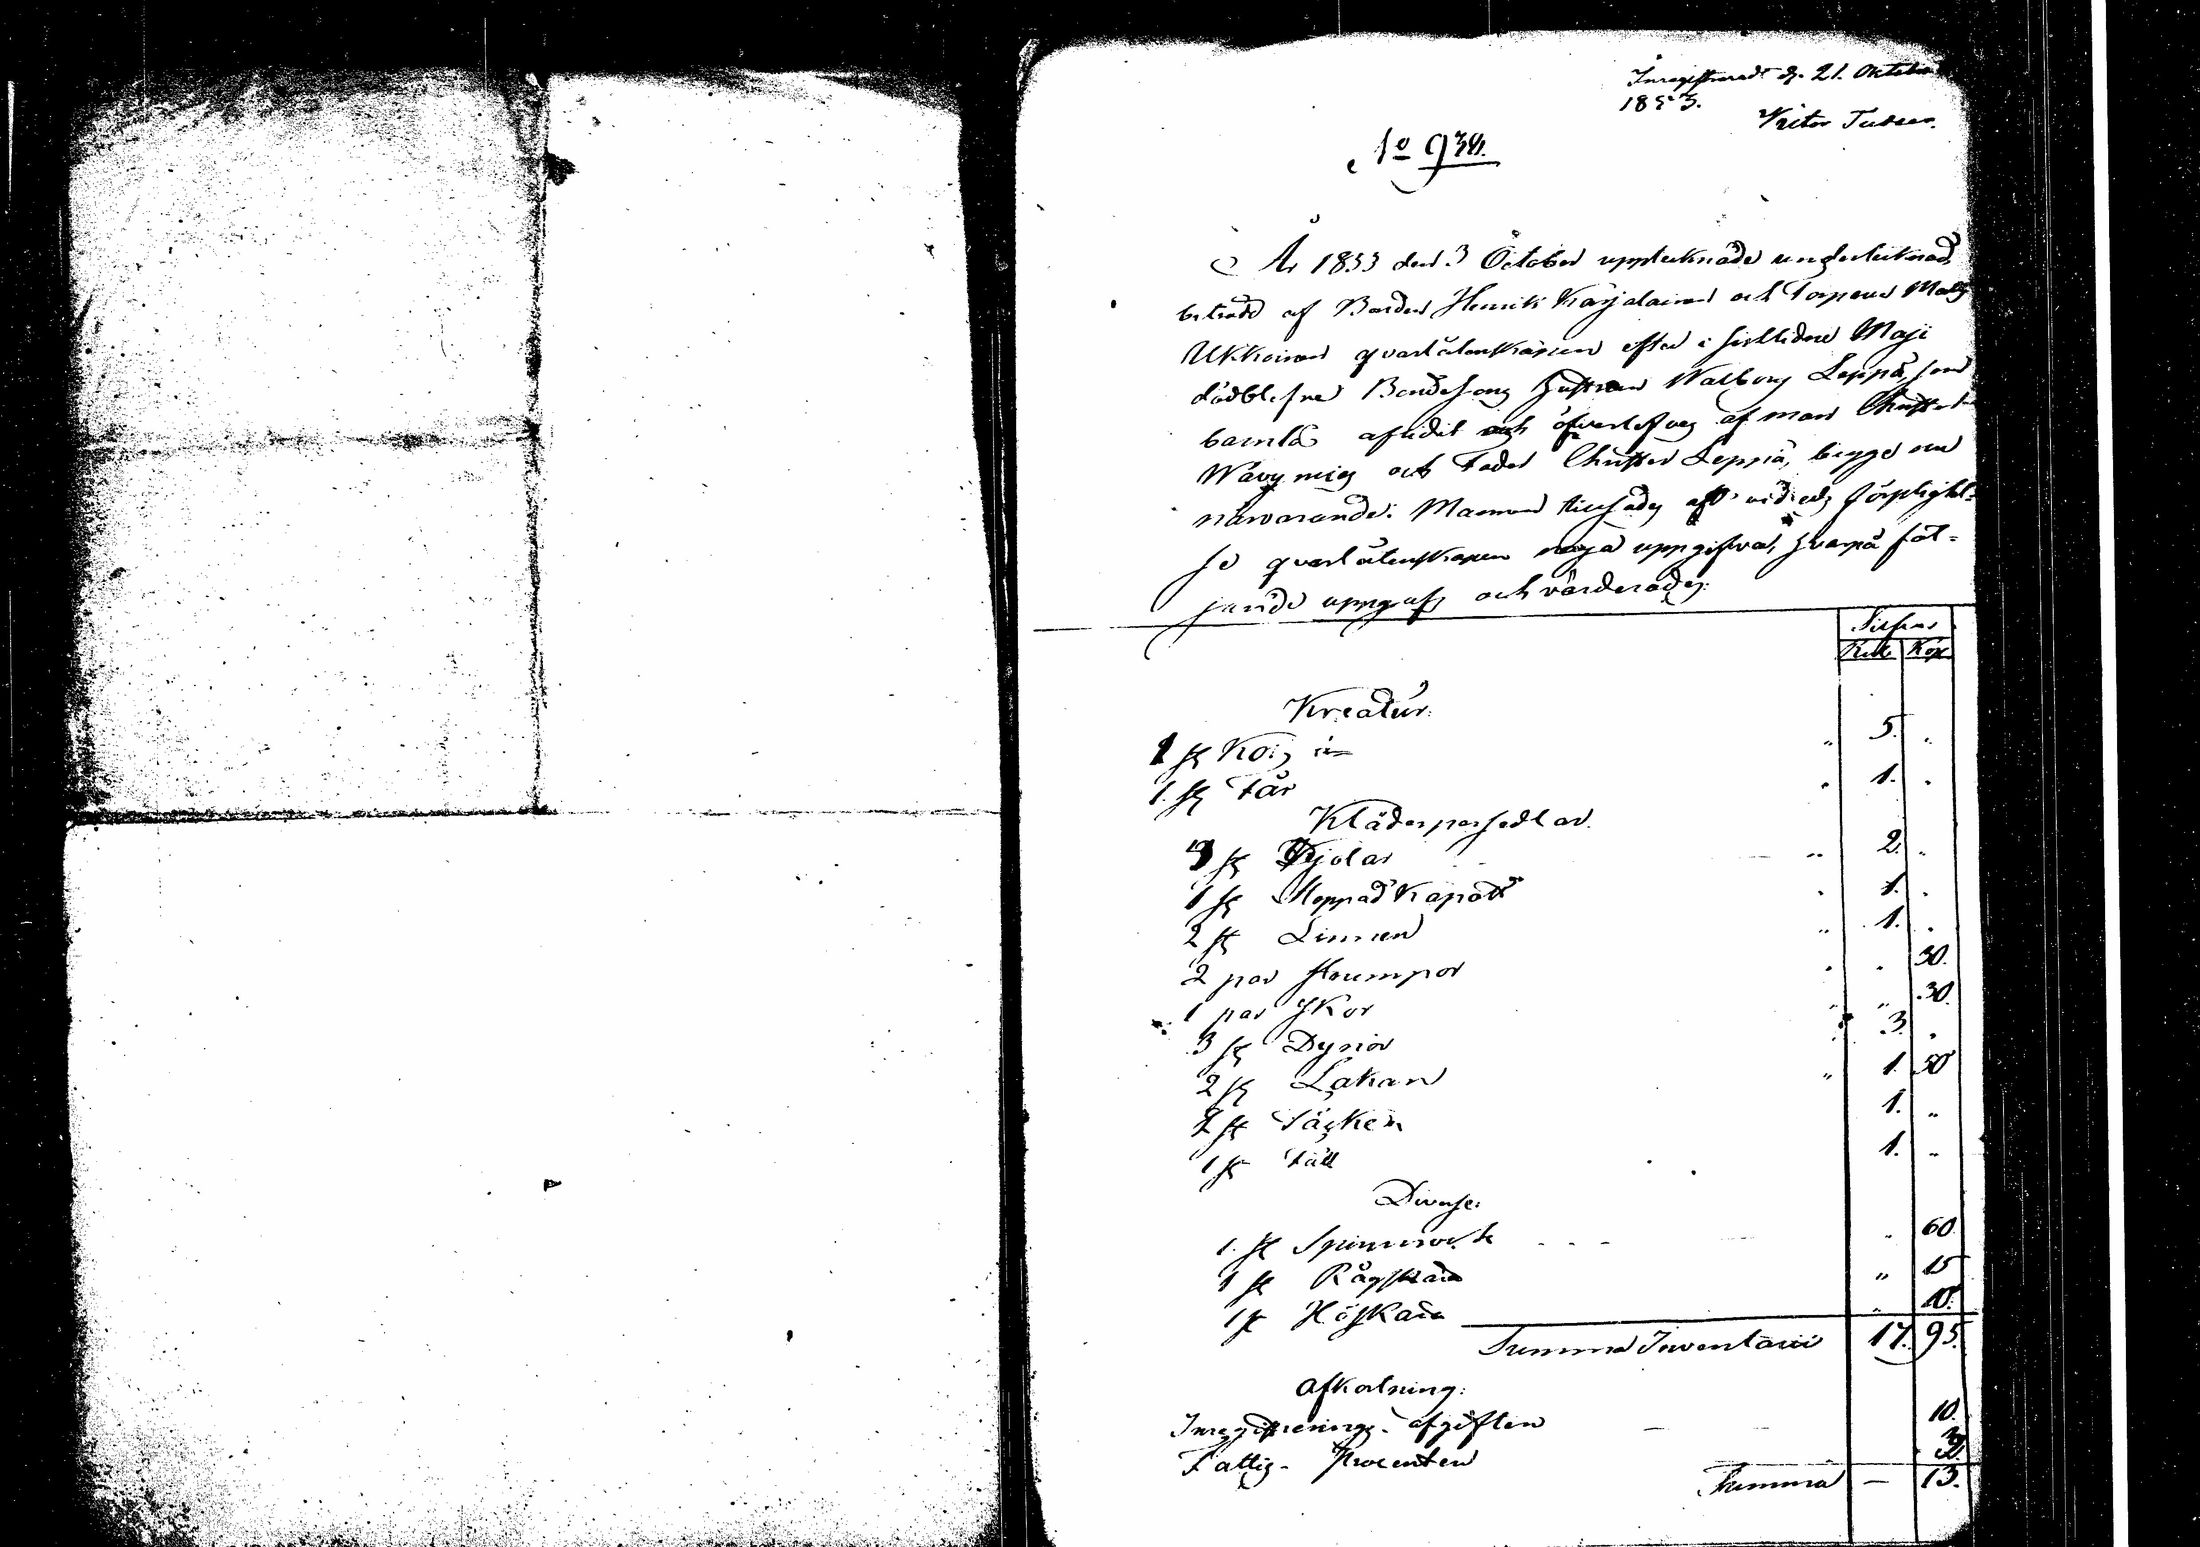 Inregistrerad d. 21. Oktober
1853.
Victor
No 934.
År 1853 den 3 October upptecknade undertecknad,
biträdd af Bonden Henrik Karjalainen och Torparen Mats
Ukkoinen qvarlåtenskapen efter i sistlidne Maji
dödblefne Bondesons hustrun Walborg Leppä, som
barnlös aflidit och öfverlefves af man Christer
och Fader Christer Leppä, begge nu
närvarande. Mannen tillsades att vid eds förpligtel-
se qvarlåtenskapen noga uppgifva, hvarpå föl-
jande uppgafs och värderades:
Silfver
Rub Kop
Kreatur:
1 st Ko, " 5. "
1. st Får " 1. "
Klädespersedlar.
3 st Kjolar " 2. "
1 st Stoppad Kapott " 1. "
2 st Linnen " 1. "
2 par strumpor " " 30.
1 par Skor " " 30.
3 st Dynor " 3. "
2 st Lakan " 1. 50
2 st Täcken 1. "
1 st Fäll 1. "
Diverse:
1. st Spinnrock " 60.
1 st Rågskära " 15
1 st Höskära " 10.
Summa Inventarii 17. 95.
Afkortning:
Inregistrerings-afgiften — 10.
Fattig-Procenten 3.
Summa — 13.